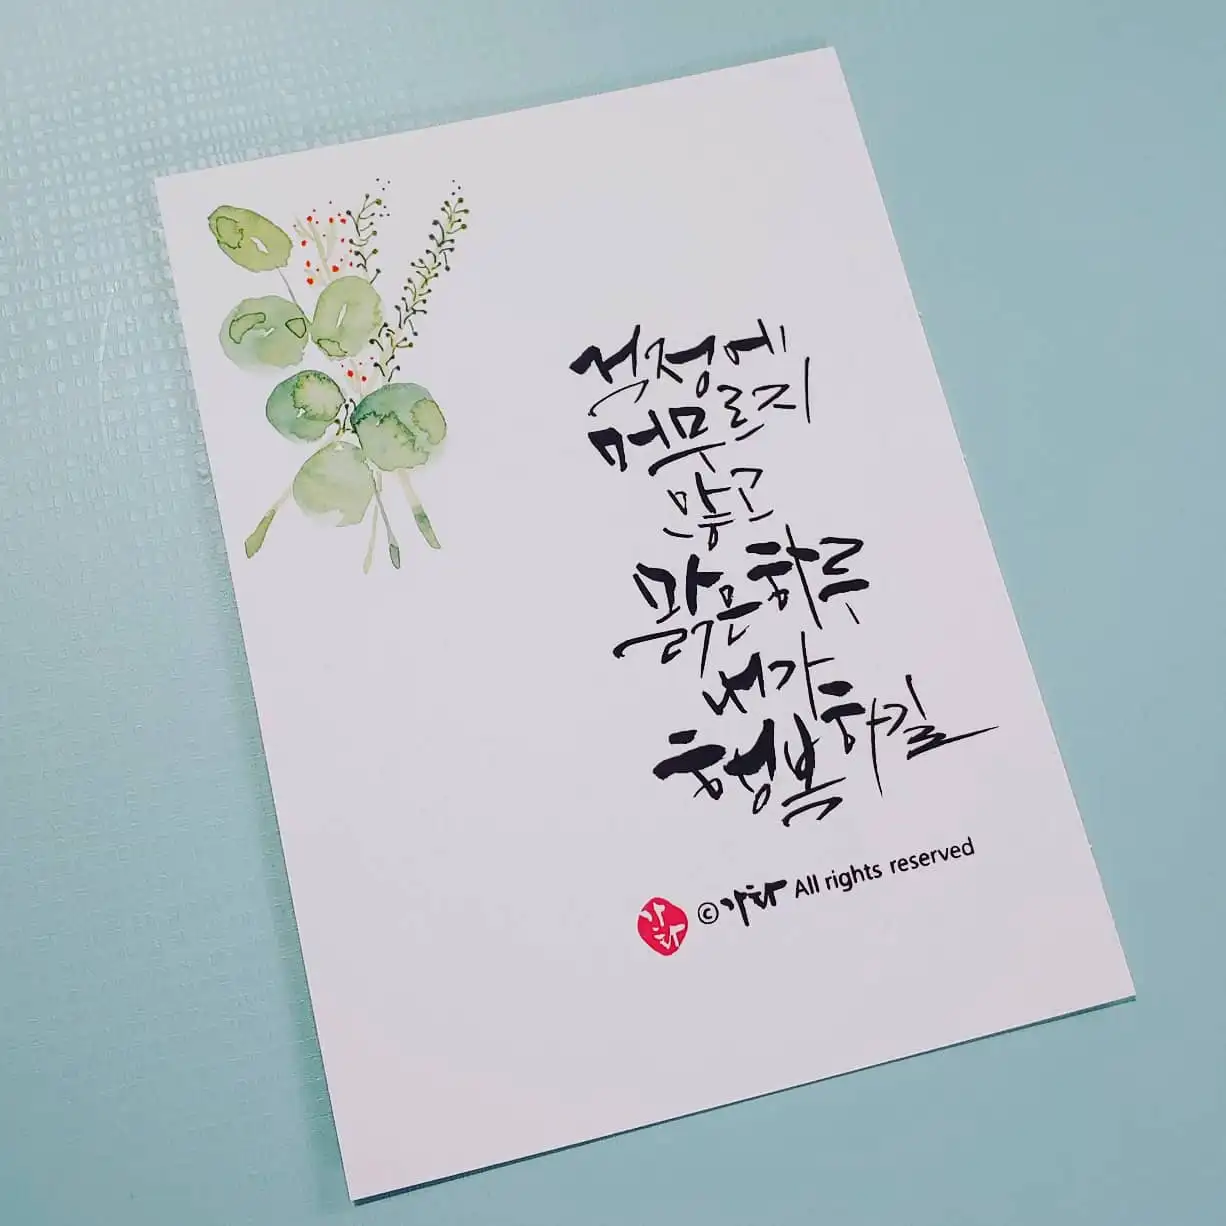 걱정에
머무르지
않고
맑은 하루
내가
행복하길
© 가화 All rights reserved
가화